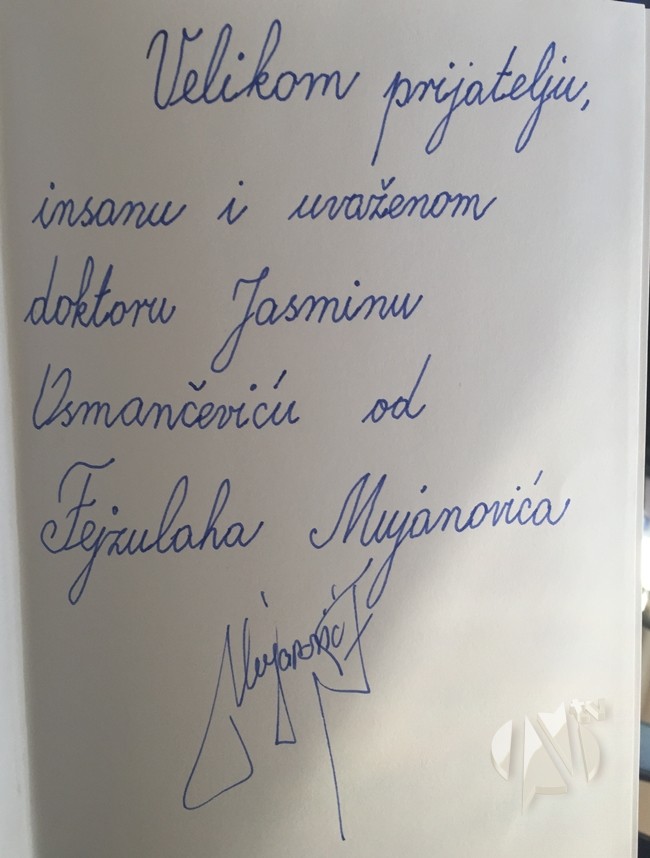 Velikom prijatelju,
insanu i uvaženom
doktoru Jasminu
Osmančeviću od
Fejzulaha Mujanovića